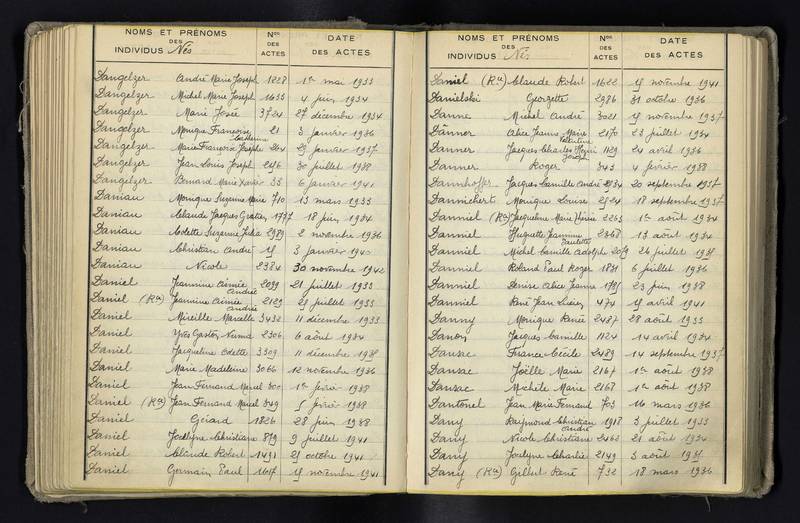 NOMS ET PRÉNOMS DES INDIVIDUS Nés
Nos DES ACTES
DATE DES ACTES
Dangelzer André Marie Joseph 1228 1er mai 1933
Dangelzer Michel Marie Joseph 1655 4 juin 1934
Dangelzer Marie Josée 3724 27 décembre 1934
Dangelzer Monique Françoise 21 3 janvier 1936
Catherine
Dangelzer Marie Françoise Josèphe 264 29 janvier 1937
Dangelzer Jean Louis Joseph 30 juillet 1938
Dangelzer Bernard Marie Xavier 55 6 janvier 1941
Daniau Monique Suzanne Marie 710 13 mars 1933
Daniau Claude Jacques Gratien 1797 18 juin 1934
Daniau Odette Suzanne Julia 2989 2 novembre 1936
Daniau Christian André 15 3 janvier
Daniau Nicole 2384 30 novembre 1942
Daniel Jeannine Aimée 2099 21 juillet 1933
Andrée
Daniel (Ron) Jeannine Aimée 2129 25 juillet 1933
Andrée
Daniel Mireille Marcelle 3432 11 décembre 1933
Daniel Yves Gaston Numa 2306 6 août 1934
Daniel Jacqueline Odette 3309 11 décembre 1935
Daniel Marie Madeleine 3066 12 novembre 1936
Daniel Jean Fernand Marcel 300 1er février 1938
Daniel (Ron) Jean Fernand Marcel 349 5 février 1938
Daniel Gérard 1826 28 juin 1938
Daniel Jocelyne Christiane 879 9 juillet 1941
Daniel Claude Robert 1491 25 octobre 1941
Daniel Germain Paul 1617 15 novembre 1941
NOMS ET PRÉNOMS DES INDIVIDUS Nés
Nos DES ACTES
DATE DES ACTES
Daniel (Ron) Claude Robert 1622 15 novembre 1941
Danielski Georgette 2986 31 octobre 1936
Danne Michel André 3021 15 novembre 1937
Danner Alice Jeanne Marie 2170 23 juillet 1934
Valentine
Danner Jacques Charles Henri 1129 24 avril 1936
Joseph
Danner Roger 343 4 février 1938
Dannhoffer Jacques Camille André 2534 20 septembre 1937
Dannichert Monique Louise 2524 18 septembre 1937
Danniel (Ron) Jacqueline Marie 2263 1er août 1934
Danniel Huguette Jeannine 2368 13 août 1934
Paulette
Danniel Michel Camille Adolphe 2079 26 juillet 1935
Danniel Roland Paul Roger 1831 6 juillet 1936
Danniel Denise Alice Jeanne 1785 23 juin 1938
Danniel René Jean Lucien 474 15 avril 1941
Danny Monique Renée 2487 28 août 1933
Danon Jacques Camille 1124 14 avril 1934
Dansac France Cécile 2489 14 septembre 1937
Dansac Joëlle Marie 2167 1er août 1938
Dansac Michèle Marie 2168 1er août 1938
Dantonel Jean Marie Fernand 703 16 mars 1936
Dany Raymond Christian 1918 3 juillet 1933
André
Dany Nicole Christiane 2462 21 août 1934
Dany Jocelyne Charlie 2149 3 août 1935
Dany (Ron) Gilbert René 732 18 mars 1936